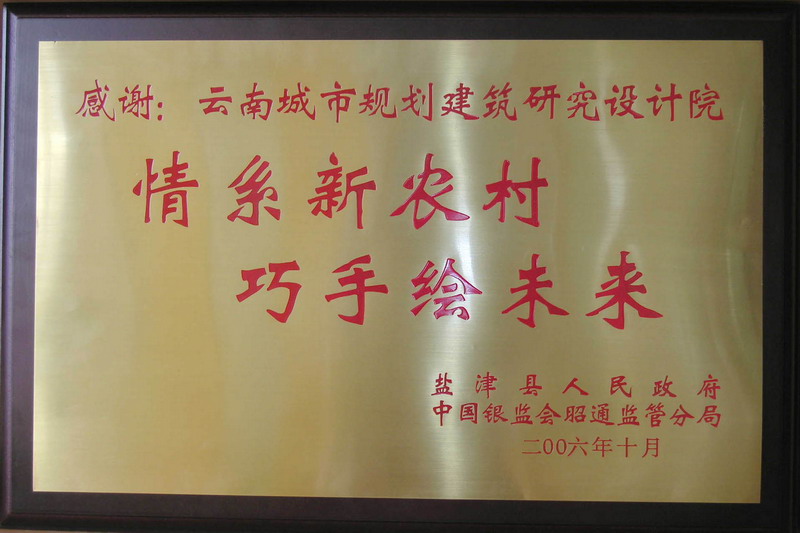 感谢：云南城市规划建筑研究设计院
情系新农村
巧手绘未来
盐津县人民政府
中国银监会昭通监管分局
二00六年十月